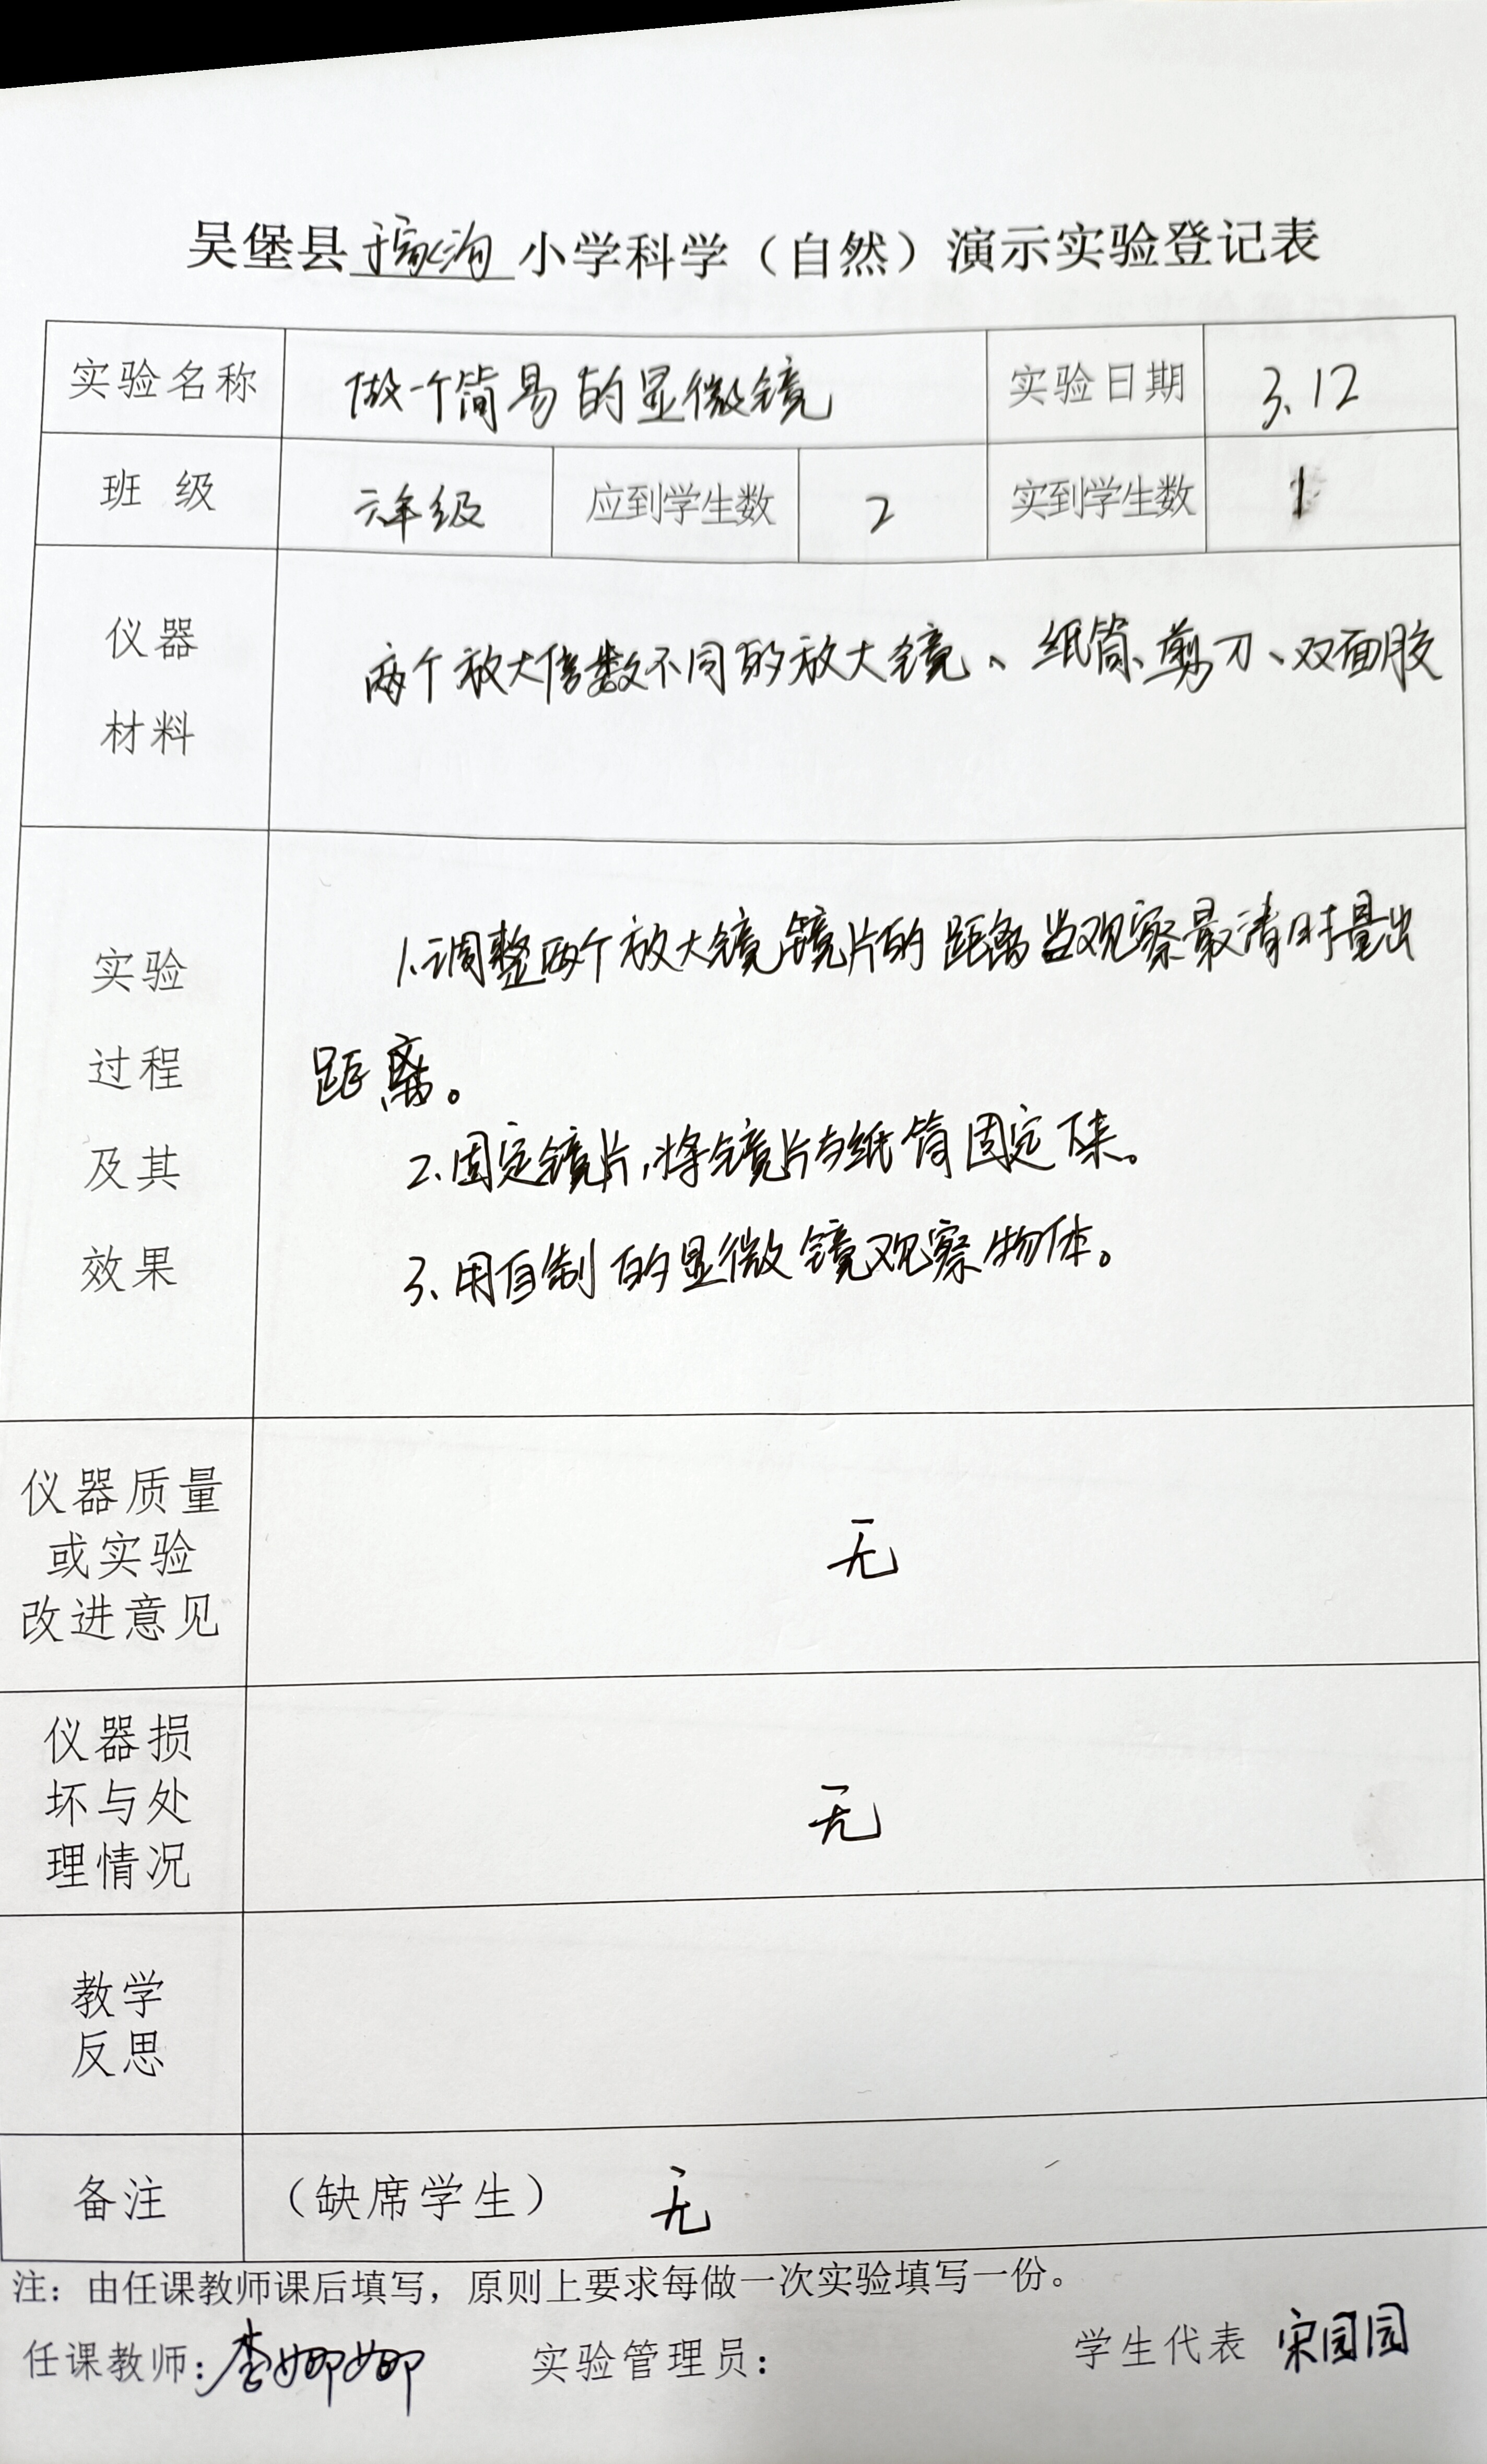 吴堡县于家沟小学科学（自然）演示实验登记表
实验名称 做一个简易的显微镜 实验日期 3.12
班 级 六年级 应到学生数 2 实到学生数 1
仪器
材料
两个放大倍数不同的放大镜、纸筒、剪刀、双面胶
实验
过程
及其
效果
1.调整两个放大镜镜片的距离当观察最清时量出
距离。
2.固定镜片,将镜片与纸筒固定下来。
3、用自制的显微镜观察物体。
仪器质量
或实验
改进意见
无
仪器损
坏与处
理情况
无
教学
反思
备注 （缺席学生） 无
注：由任课教师课后填写，原则上要求每做一次实验填写一份。
任课教师：李娜娜 实验管理员： 学生代表 宋园园